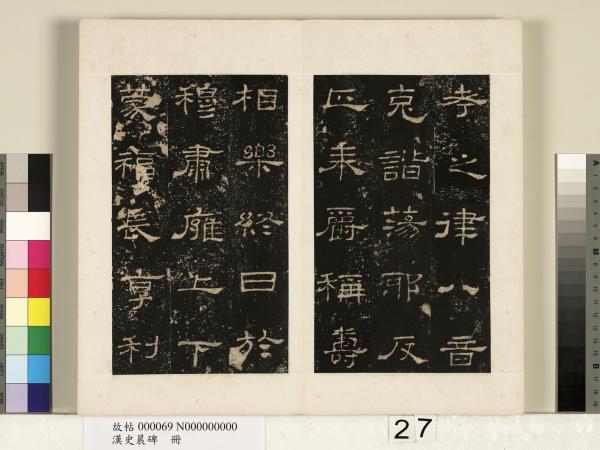 考之律八音
克諧蕩邪反
正奉爵稱壽
相樂終日於
穆肅雍上下
蒙福長享利
故帖 000069 N000000000
漢史晨碑 冊
27